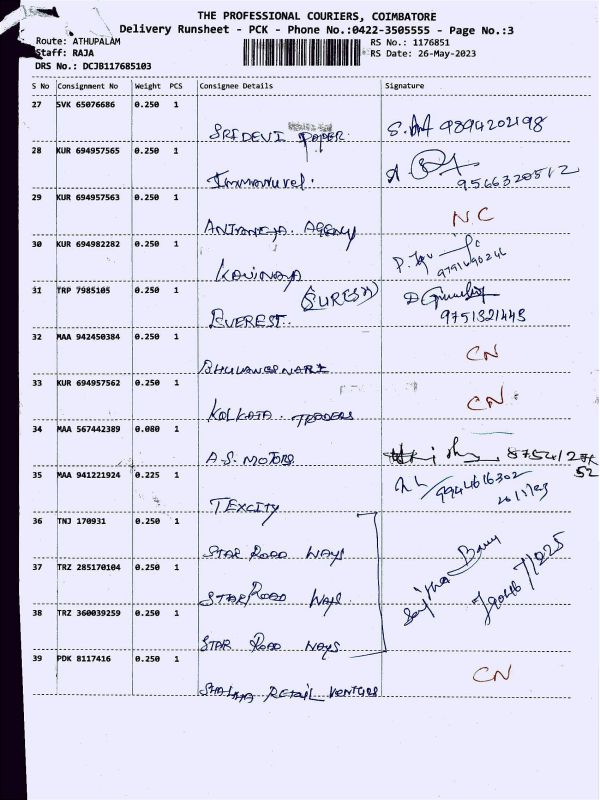 THE PROFESSIONAL COURIERS, COIMBATORE
Delivery Runsheet - PCK - Phone No.:0422-3505555 - Page No.:3
Route: ATHUPALAM RS No.: 1176851
Staff: RAJA RS Date: 26-May-2023
DRS No.: DCJB117685103
S No Consignment No Weight PCS Consignee Details Signature
27 SVK 65076686 0.250 1
SRI DEVI PAPER. 9894202198
28 KUR 694957565 0.250 1
Immanuvel. 9566320512
29 KUR 694957563 0.250 1 N.C
AGENCY
30 KUR 694982282 0.250 1
31 TRP 7985105 0.250 1 (SURESH)
EVEREST.. 9751321443
32 MAA 942450384 0.250 1 CN
33 KUR 694957562 0.250 1 CN
KOLKATA. TRADERS
34 MAA 567442389 0.080 1
A.S. MOTORS
35 MAA 941221924 0.225 1 9944616302
TEXCITY
36 TNJ 170931 0.250 1
STAR ROAD WAYS
37 TRZ 285170104 0.250 1
STAR ROAD WAYS
38 TRZ 360039259 0.250 1
STAR ROAD WAYS
39 PDK 8117416 0.250 1 CN
RETAIL VENTURES